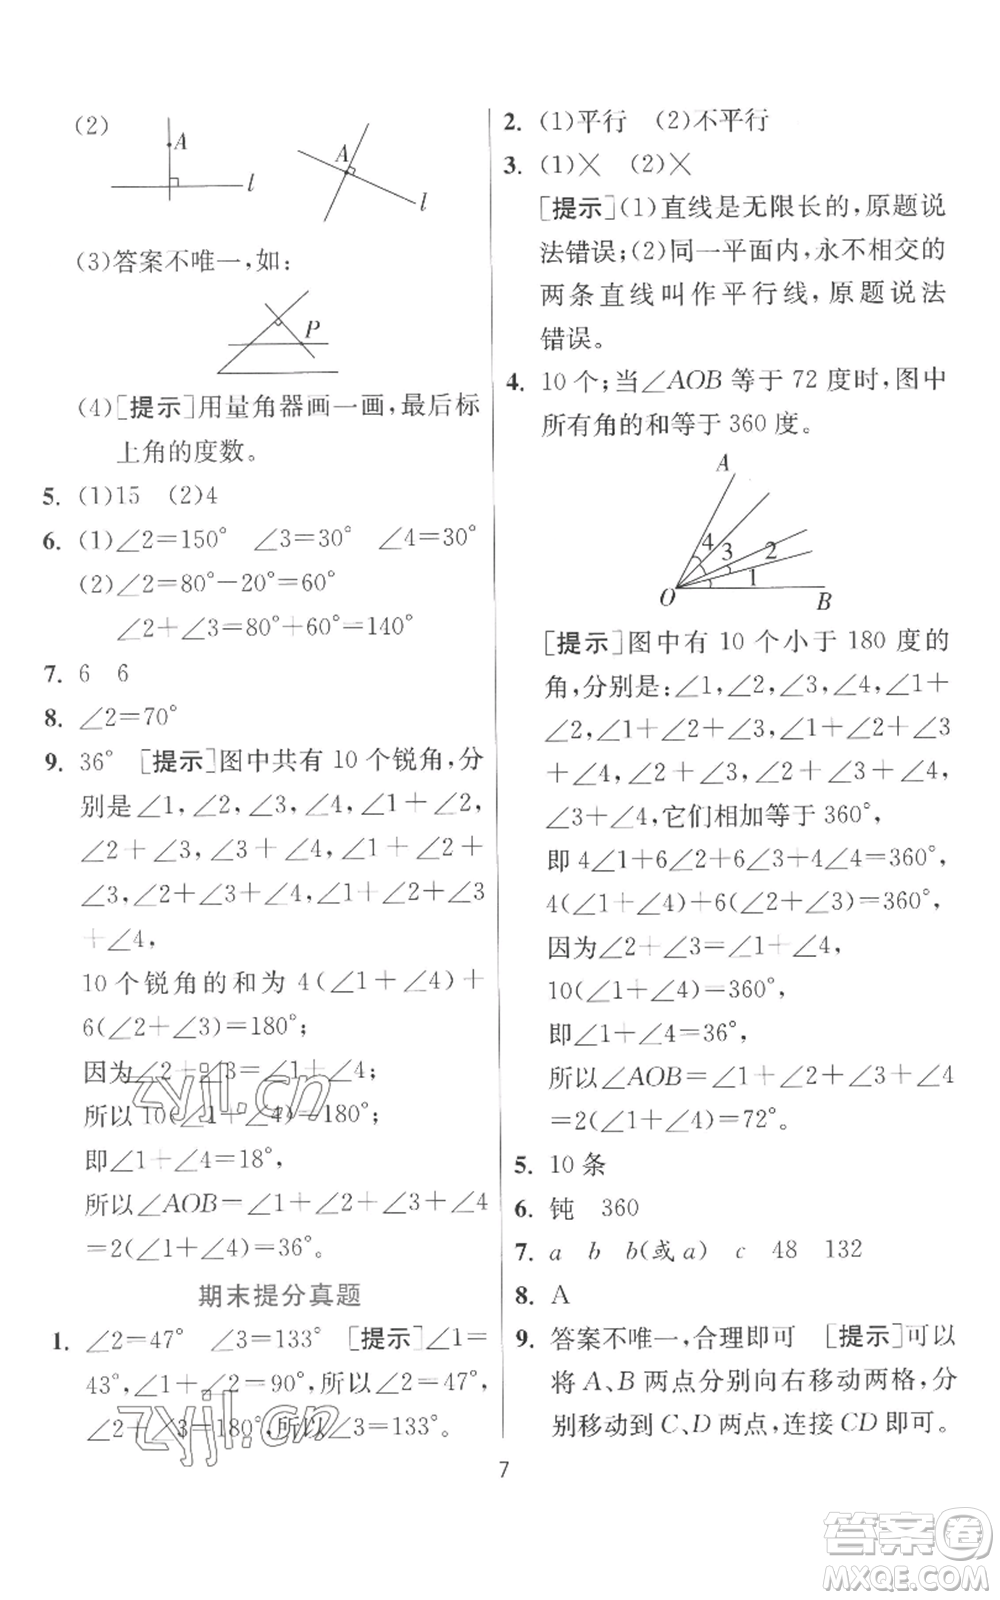 (2)
A
l
A
l
(3)答案不唯一,如:
P
(4)[提示]用量角器画一画,最后标
上角的度数。
5. (1)15 (2)4
6. (1)∠2=150° ∠3=30° ∠4=30°
(2)∠2=80°-20°=60°
∠2+∠3=80°+60°=140°
7. 6 6
8. ∠2=70°
9. 36° [提示]图中共有 10 个锐角,分
别是∠1,∠2,∠3,∠4,∠1+∠2,
∠2+∠3,∠3+∠4,∠1+∠2+
∠3,∠2+∠3+∠4,∠1+∠2+∠3
+∠4,
10 个锐角的和为 4(∠1+∠4)+
6(∠2+∠3)=180°;
因为∠2+∠3=∠1+∠4;
所以 10(∠1+∠4)=180°;
即∠1+∠4=18°,
所以∠AOB=∠1+∠2+∠3+∠4
=2(∠1+∠4)=36°。
期末提分真题
1. ∠2=47° ∠3=133° [提示]∠1=
43°,∠1+∠2=90°,所以∠2=47°,
∠2+∠3=180°,所以∠3=133°。
2. (1)平行 (2)不平行
3. (1)× (2)×
[提示](1)直线是无限长的,原题说
法错误;(2)同一平面内,永不相交的
两条直线叫作平行线,原题说法
错误。
4. 10 个;当∠AOB 等于 72 度时,图中
所有角的和等于 360 度。
A
4
3
2
1
O
B
[提示]图中有 10 个小于 180 度的
角,分别是:∠1,∠2,∠3,∠4,∠1+
∠2,∠1+∠2+∠3,∠1+∠2+∠3
+∠4,∠2+∠3,∠2+∠3+∠4,
∠3+∠4,它们相加等于 360°,
即 4∠1+6∠2+6∠3+4∠4=360°,
4(∠1+∠4)+6(∠2+∠3)=360°,
因为∠2+∠3=∠1+∠4,
10(∠1+∠4)=360°,
即∠1+∠4=36°,
所以∠AOB=∠1+∠2+∠3+∠4
=2(∠1+∠4)=72°。
5. 10 条
6. 钝 360
7. a b b(或 a) c 48 132
8. A
9. 答案不唯一,合理即可 [提示]可以
将 A、B 两点分别向右移动两格,分
别移动到 C、D 两点,连接 CD 即可。
7
zyjl.cn
zyjl.cn
答案圈
MXQE.COM